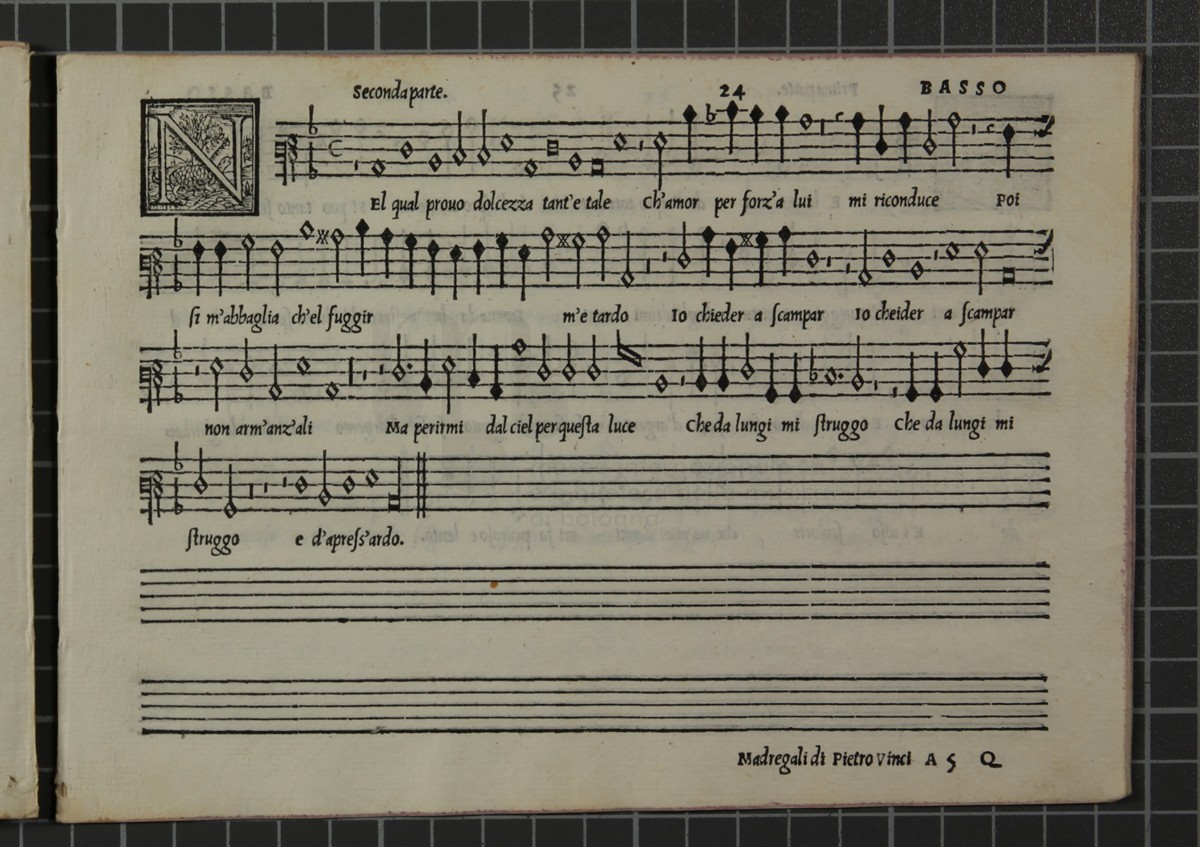 Seconda parte. 24 BASSO
NEl qual prouo dolcezza tant'e tale Ch'amor per forz'a lui mi riconduce Poi
si m'abbaglia ch'el fuggir m'e tardo Io chieder a scampar Io cheider a scampar
non arm'anz'ali Ma perirmi dal ciel per questa luce Che da lungi mi struggo Che da lungi mi
struggo e d'apress'ardo.
Madregali di Pietro Vinci A 5 Q